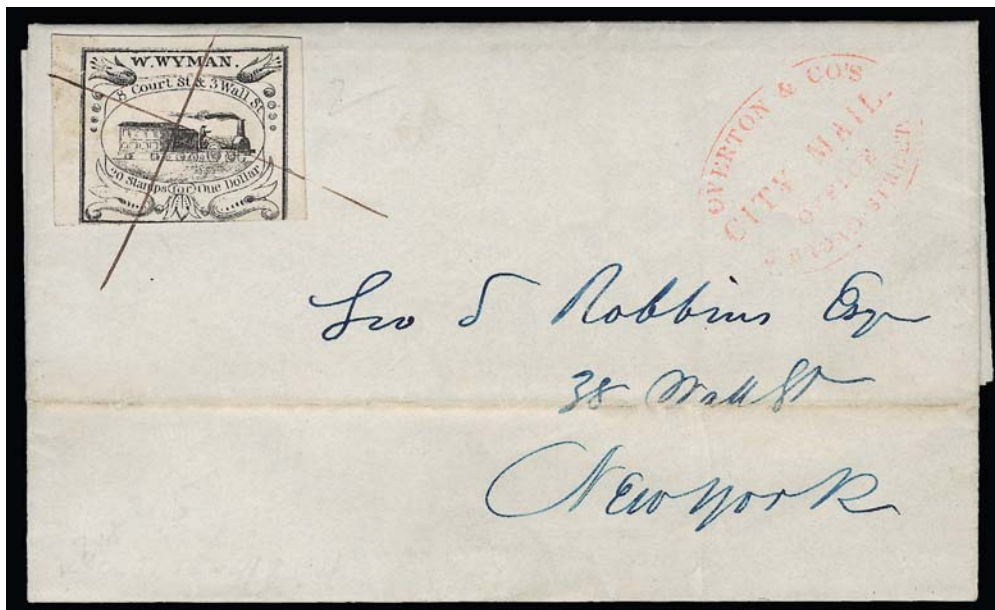 W. WYMAN.
8 Court St & 3 Wall St
20 Stamps for One Dollar
OVERTON & CO'S
CITY MAIL.
OFFICE
BROAD STREET
Geo S Robbins Esqr
38 Wall St
New York